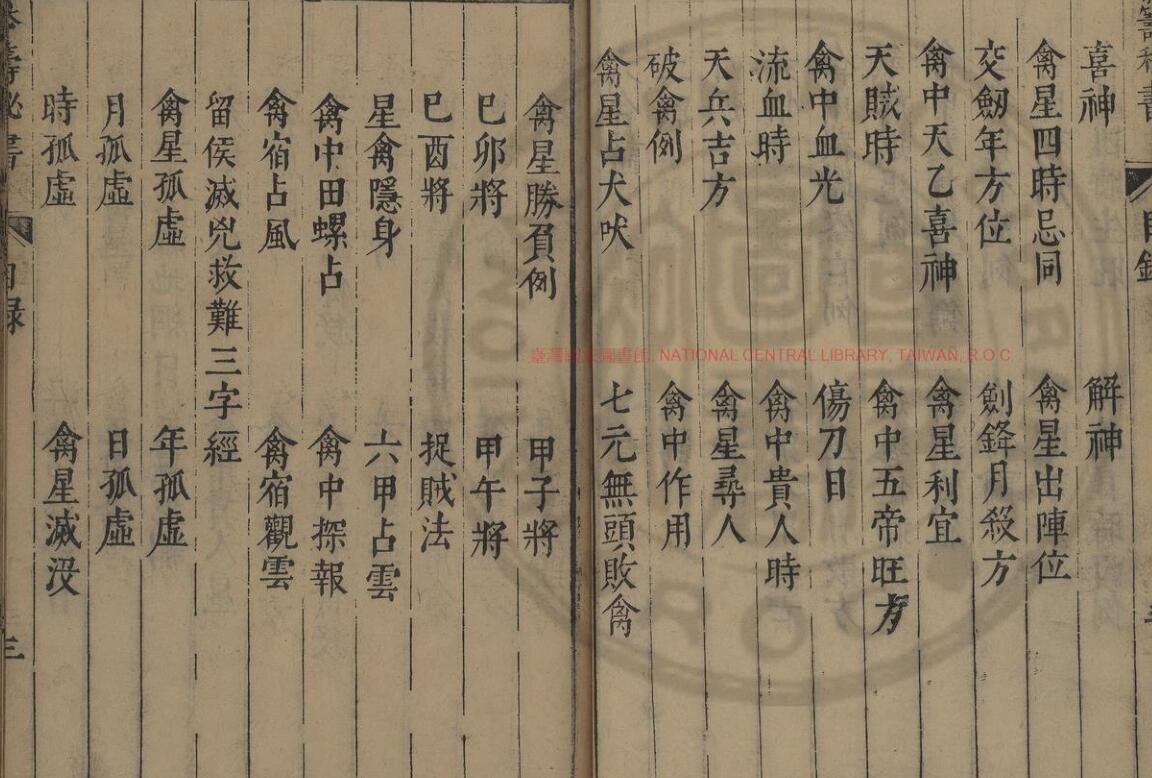 喜神　解神
禽星四時忌同　禽星出陣位
交劒年方位　劍鋒月殺方
禽中天乙喜神　禽星利宜
天賊時　禽中五帝旺方
禽中血光　傷刀日
流血時　禽中貴人時
天兵吉方　禽星尋人
破禽例　禽中作用
禽星占犬吠　七元無頭敗禽
禽星勝負例　甲子將
巳卯將　甲午將
巳酉將　捉賊法
星禽隱身　六甲占雲
禽中田螺占　禽中探報
禽宿占風　禽宿觀雲
留侯滅兇救難三字經
禽星孤虛　年孤虛
月孤虛　日孤虛
時孤虛　禽星滅沒
秘書　目錄　三
NATIONAL CENTRAL LIBRARY, TAIWAN, R.O.C